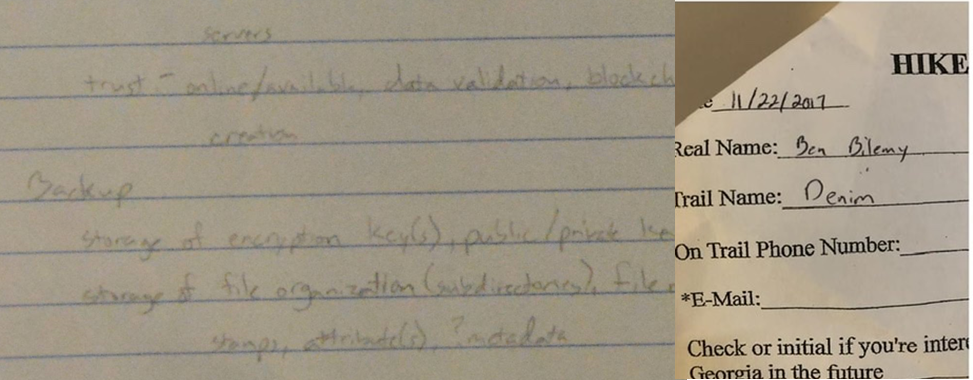 servers
trust - online/available, data validation, blockch
creation
Backup
storage of encryption key(s), public/private ke
storage of file organization (subdirectories), file
stamps, attribute(s), ?metadata
HIKE
e 11/22/2017
Real Name: Ben Bilemy
Trail Name: Denim
On Trail Phone Number:
*E-Mail:
Check or initial if you're intere
Georgia in the future